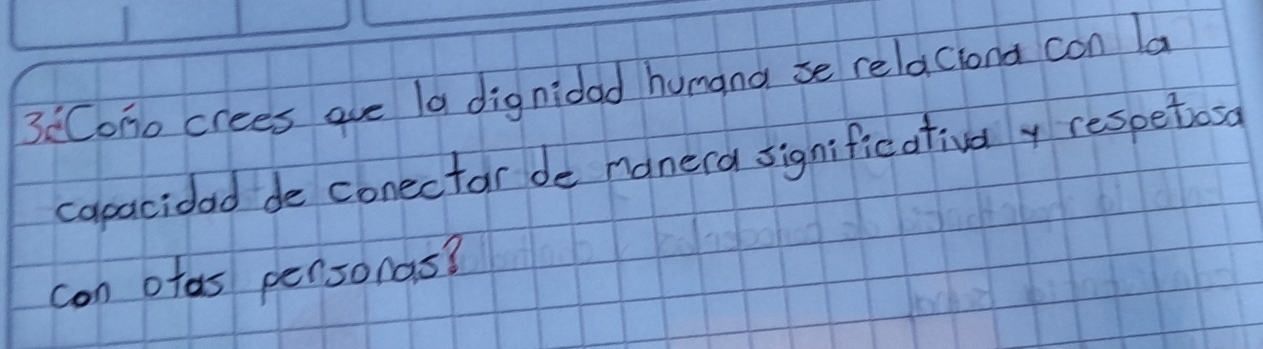 3¿Cómo crees que la dignidad humana se relaciona con la
capacidad de conectar de manera significativa y respetuosa
con otas personas?